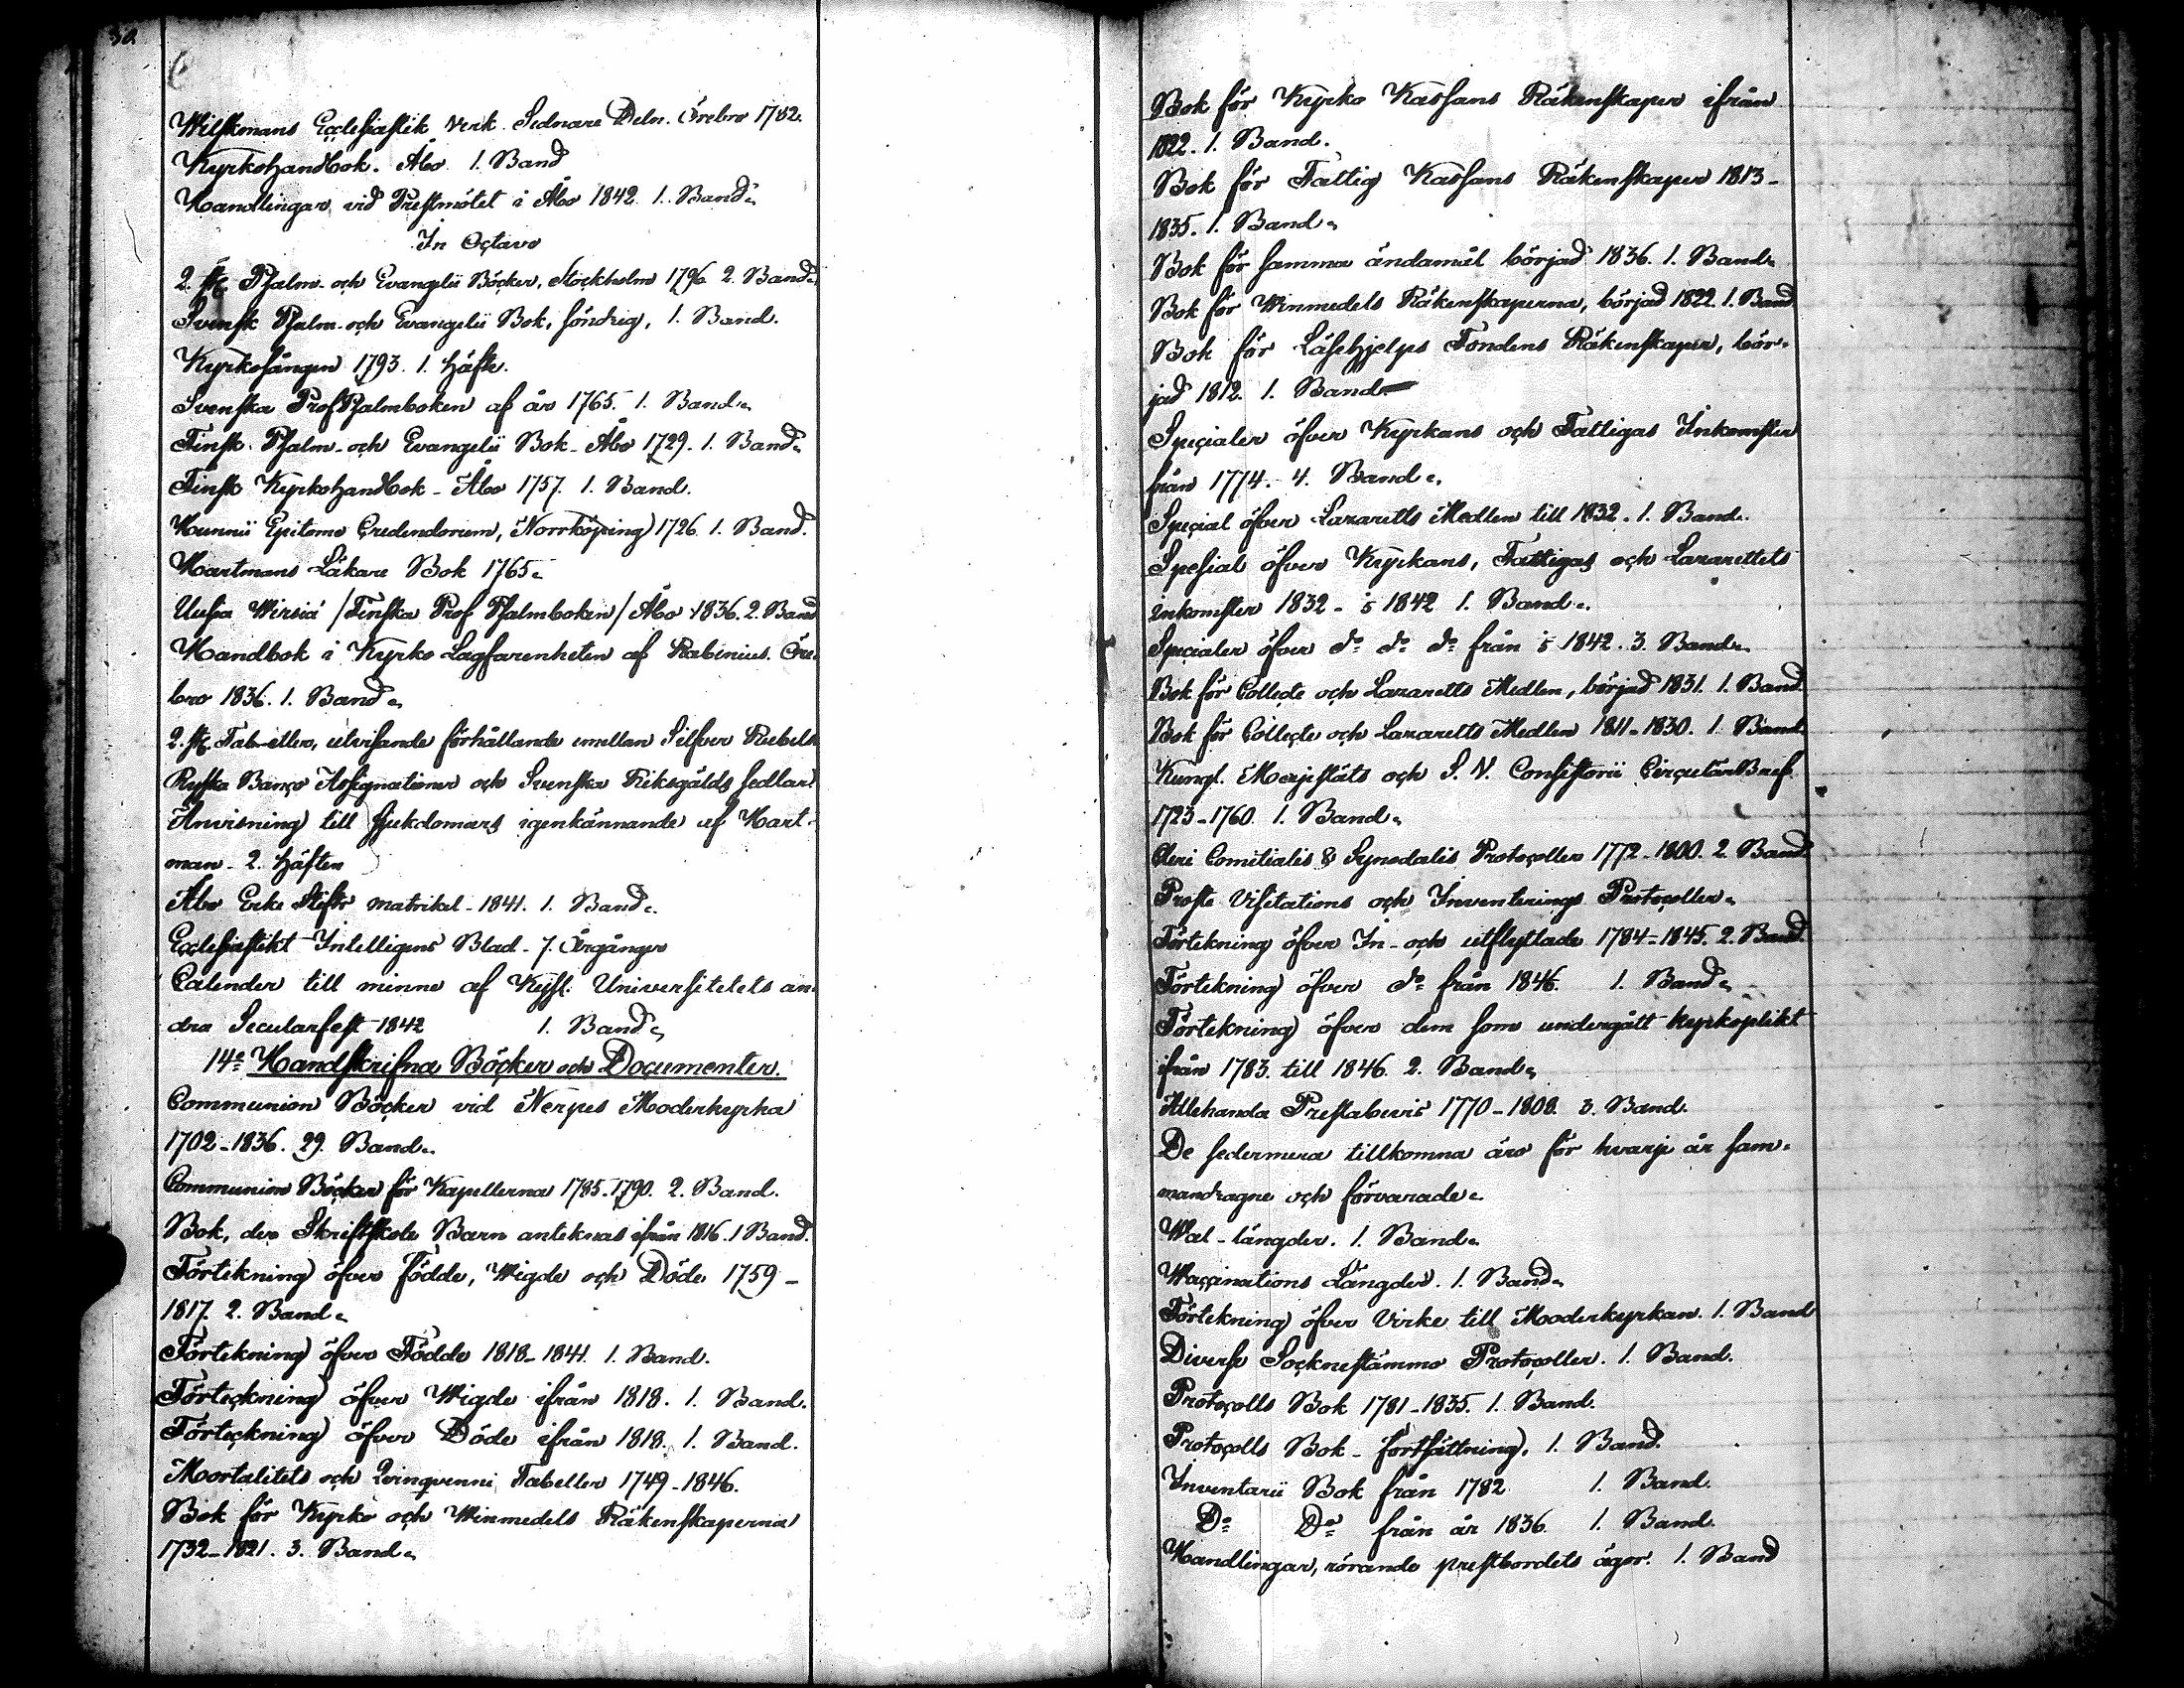 30.
Wilskmans Ecclesiastik Verk. Sednare Deln. Örebro 1782.
Kyrkohandbok. Åbo. 1. Band
Handlingar vid Prestmötet i Åbo 1842. 1. Band.
In Octavo
2. st. Psalm- och Evangelii Böcker, Stockholm 1796. 2. Band.
Svensk Psalm- och Evangelii Bok, söndrig, 1. Band.
Kyrkosången 1793. 1. häfte.
Svenska Prof Psalmboken af år 1765. 1. Band.
Finsk Psalm- och Evangelii Bok - Åbo 1729. 1. Band.
Finsk Kyrkohandbok - Åbo 1757. 1. Band.
Hunnii Epitome Credendorum, Norrköping 1726. 1. Band.
Hartmans Läkare Bok 1765.
Uusia Wirsiä /Finska Prof Psalmboken/ Åbo 1836. 2. Band
Handbok i Kyrko Lagfarenheten af Rabenius. Öre-
bro 1836. 1. Band.
2. st. Tabeller, utvisande förhållande emellan Silfver Rubeln
Ryska Banco Assignationer och Svenska Riksgälds sedlar
Anvisning till sjukdomars igenkännande af Hart-
man - 2. häften
Åbo Erke Stifts matrikel - 1841. 1. Band.
Ecclesiastikt Intelligens Blad - 7. Årgångar
Calender till minne af Kejs. Universitetets an-
dra Secularfest 1842 1. Band.
14e Handskrifna Böcker och Documenter.
Communion Böcker vid Nerpes Moderkyrka
1702-1836. 29. Band.
Communion Böcker för Kapellerna 1785-1790. 2. Band.
Bok, der Skriftskole Barn anteknas ifrån 1816. 1 Band.
Förtekning öfver födde, Wigde och Döde 1759-
1817. 2. Band.
Förtekning öfver Födde 1818-1841. 1. Band.
Förteckning öfver Wigde ifrån 1818. 1. Band.
Förteckning öfver Döde ifrån 1818. 1. Band.
Mortalitets och Qvinqvenni Tabeller 1749-1846.
Bok för Kyrko och Winmedels Räkenskaperna
1732-1821. 3. Band.
Bok för Kyrko Kassans Räkenskaper ifrån
1822. 1. Band.
Bok för Fattig Kassans Räkenskaper 1813-
1835. 1. Band.
Bok för samma ändamål börjad 1836. 1. Band.
Bok för Winmedels Räkenskaperna, börjad 1822. 1. Band
Bok för Läsehjelps Fondens Räkenskaper, bör-
jad 1812. 1. Band
Specialer öfver Kyrkans och Fattigas Inkomster
från 1774. - 4. Band.
Special öfver Lazaretts Medlen till 1832. 1. Band.
Spesial öfver Kyrkans, Fattigas och Lazarettets
inkomster 1832 - 1842 1. Band.
Specialer öfver do do do från 1842. 3. Band.
Bok för Collecte och Lazaretts Medlen, börjad 1831. 1. Band.
Bok för Collecte och Lazaretts Medlen 1811-1830. 1. Band
Kungl. Majestäts och S. V. Consistorii Circulär Bref
1723-1760. 1. Band.
Cleri Comitialis & Synodalis Protocoller 1772-1800. 2. Band
Proste Visitations och Inventerings Protocoller.
Förtekning öfver In- och utflyttade 1784-1845. 2. Band.
Förtekning öfver do från 1846. 1. Band.
Förtekning öfver dem som undergått kyrkoplikt
ifrån 1783. till 1846. 2. Band.
Allehanda Prestabevis 1770-1808. 3. Band.
De sedermera tillkomna äro för hvarje år sam-
mandragne och förvarade.
Wal-längder. 1. Band.
Waccinations Längder. 1. Band.
Förtekning öfver Virke till Moderkyrkan. 1. Band
Diverse Socknestämmo Protocoller. 1. Band.
Protocolls Bok 1781-1835. 1. Band.
Protocolls Bok - fortsättning. 1. Band.
Inventarii Bok från 1782 1. Band.
Do Do från år 1836. 1. Band.
Handlingar, rörande prestbordets ägor. 1. Band